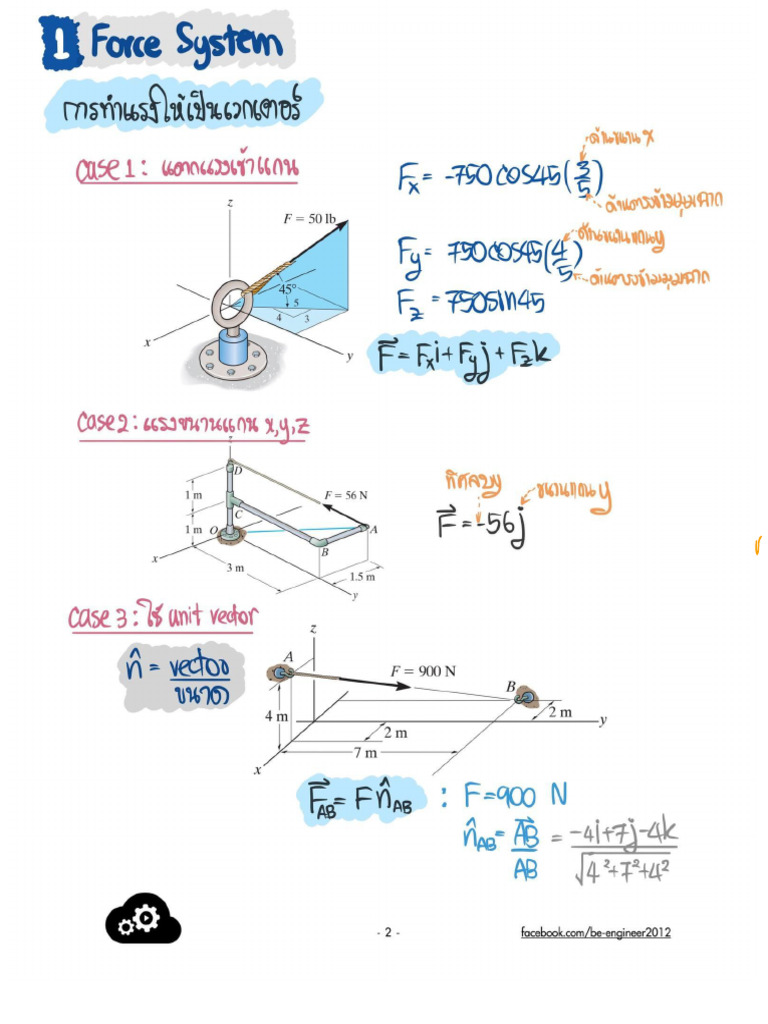 1 Force System
การทำแรงให้เป็นเวกเตอร์
case 1 : แตกแรงเข้าแกน
z
F = 50 lb
45°
5
4 3
x
y
Fx = -750 cos45 (3/5)
ด้านขนาน x
ด้านตรงข้ามมุมฉาก
Fy = 750cos45 (4/5)
ด้านขนานแกน y
ด้านตรงข้ามมุมฉาก
Fz = 750sin45
F = Fxi + Fyj + Fzk
case 2 : แรงขนานแกน x,y,z
z
D
1 m
F = 56 N
C
1 m O
A
B
x
3 m
1.5 m
y
ทิศลบy
ขนานแกน y
F = -56j
case 3 : ใช้ unit vector
n̂ = vector
ขนาด
z
A
F = 900 N
B
4 m
2 m
y
2 m
7 m
x
F⃗AB = F n̂AB : F = 900 N
n̂AB = AB⃗/AB = (-4i+7j-4k)/√(4²+7²+4²)
- 2 -
facebook.com/be-engineer2012